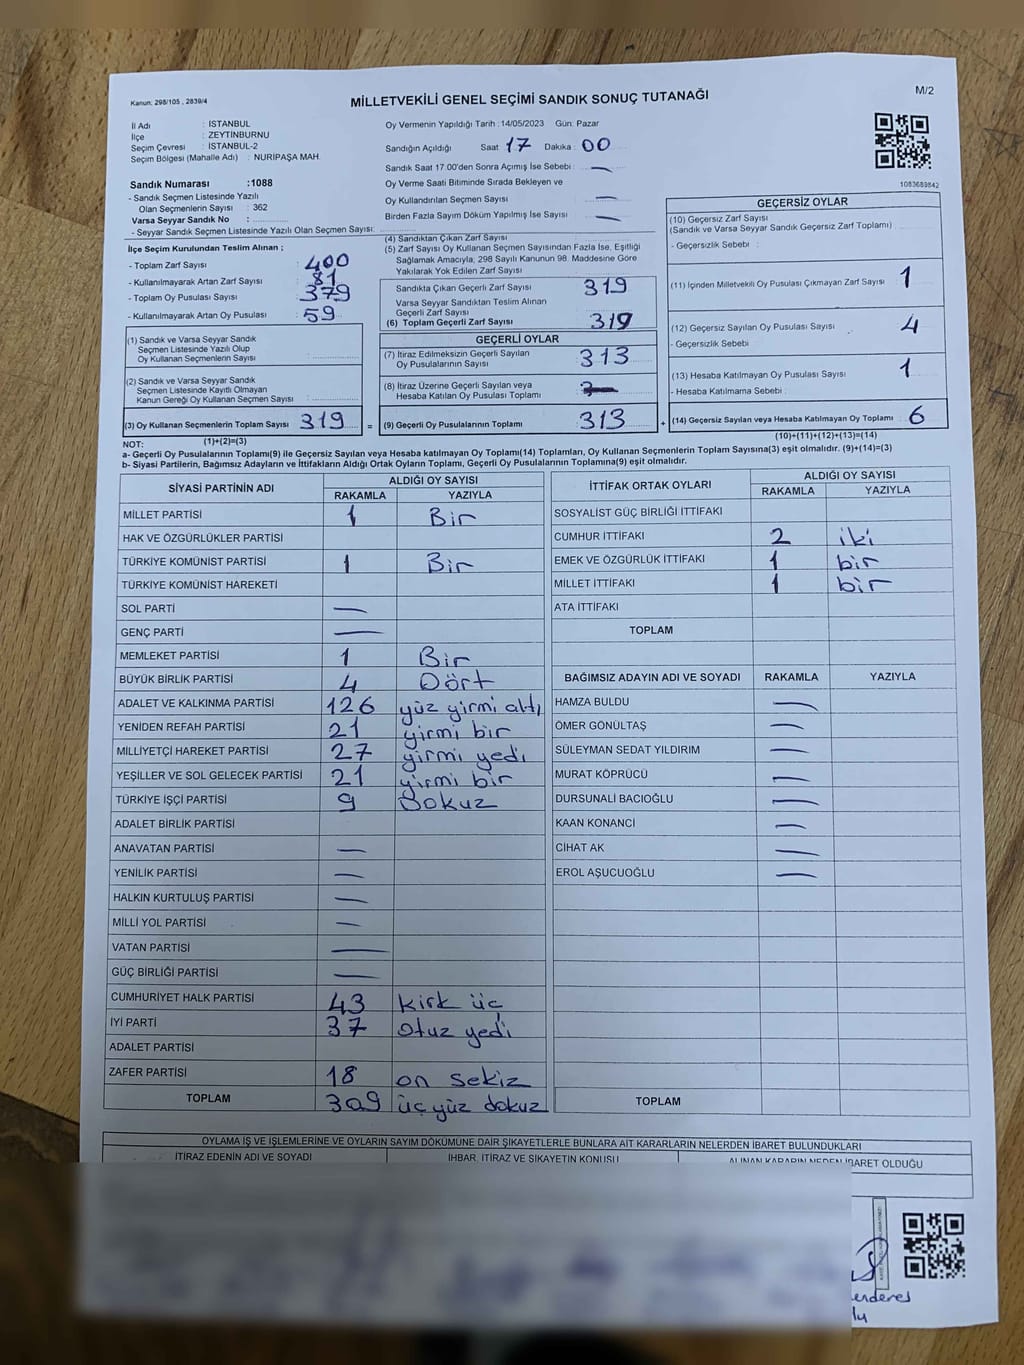 Kanun: 298/105 , 2839/4
MİLLETVEKİLİ GENEL SEÇİMİ SANDIK SONUÇ TUTANAĞI
M/2
İl Adı : İSTANBUL
İlçe : ZEYTİNBURNU
Seçim Çevresi : İSTANBUL-2
Seçim Bölgesi (Mahalle Adı) : NURİPAŞA MAH.
Sandık Numarası :1088
- Sandık Seçmen Listesinde Yazılı
Olan Seçmenlerin Sayısı : 362
Varsa Seyyar Sandık No :
- Seyyar Sandık Seçmen Listesinde Yazılı Olan Seçmen Sayısı:
Oy Vermenin Yapıldığı Tarih :14/05/2023 Gün: Pazar
Sandığın Açıldığı Saat 17 Dakika 00
Sandık Saat 17.00'den Sonra Açımış İse Sebebi : —
Oy Verme Saati Bitiminde Sırada Bekleyen ve
Oy Kullandırılan Seçmen Sayısı : —
Birden Fazla Sayım Döküm Yapılmış İse Sayısı : —
1083689842
İlçe Seçim Kurulundan Teslim Alınan ;
- Toplam Zarf Sayısı : 400
- Kullanılmayarak Artan Zarf Sayısı : 81
- Toplam Oy Pusulası Sayısı : 379
- Kullanılmayarak Artan Oy Pusulası : 59
(1) Sandık ve Varsa Seyyar Sandık
Seçmen Listesinde Yazılı Olup
Oy Kullanan Seçmenlerin Sayısı :
(2) Sandık ve Varsa Seyyar Sandık
Seçmen Listesinde Kayıtlı Olmayan
Kanun Gereği Oy Kullanan Seçmen Sayısı :
(3) Oy Kullanan Seçmenlerin Toplam Sayısı : 319
(1)+(2)=(3)
(4) Sandıktan Çıkan Zarf Sayısı :
(5) Zarf Sayısı Oy Kullanan Seçmen Sayısından Fazla İse, Eşitliği
Sağlamak Amacıyla, 298 Sayılı Kanunun 98. Maddesine Göre
Yakılarak Yok Edilen Zarf Sayısı :
Sandıkta Çıkan Geçerli Zarf Sayısı : 319
Varsa Seyyar Sandıktan Teslim Alınan
Geçerli Zarf Sayısı :
(6) Toplam Geçerli Zarf Sayısı : 319
GEÇERLİ OYLAR
(7) İtiraz Edilmeksizin Geçerli Sayılan
Oy Pusulalarının Sayısı : 313
(8) İtiraz Üzerine Geçerli Sayılan veya
Hesaba Katılan Oy Pusulası Toplamı :
= (9) Geçerli Oy Pusulalarının Toplamı : 313
GEÇERSİZ OYLAR
(10) Geçersiz Zarf Sayısı
(Sandık ve Varsa Seyyar Sandık Geçersiz Zarf Toplamı) :
- Geçersizlik Sebebi :
(11) İçinden Milletvekili Oy Pusulası Çıkmayan Zarf Sayısı : 1
(12) Geçersiz Sayılan Oy Pusulası Sayısı : 4
- Geçersizlik Sebebi :
(13) Hesaba Katılmayan Oy Pusulası Sayısı : 1
- Hesaba Katılmama Sebebi :
+ (14) Geçersiz Sayılan veya Hesaba Katılmayan Oy Toplamı : 6
(10)+(11)+(12)+(13)=(14)
NOT:
a- Geçerli Oy Pusulalarının Toplamı(9) ile Geçersiz Sayılan veya Hesaba katılmayan Oy Toplamı(14) Toplamları, Oy Kullanan Seçmenlerin Toplam Sayısına(3) eşit olmalıdır. (9)+(14)=(3)
b- Siyasi Partilerin, Bağımsız Adayların ve İttifakların Aldığı Ortak Oyların Toplamı, Geçerli Oy Pusulalarının Toplamına(9) eşit olmalıdır.
SİYASİ PARTİNİN ADI ALDIĞI OY SAYISI
RAKAMLA YAZIYLA
MİLLET PARTİSİ 1 Bir
HAK VE ÖZGÜRLÜKLER PARTİSİ
TÜRKİYE KOMÜNİST PARTİSİ 1 Bir
TÜRKİYE KOMÜNİST HAREKETİ
SOL PARTİ —
GENÇ PARTİ —
MEMLEKET PARTİSİ 1 Bir
BÜYÜK BİRLİK PARTİSİ 4 Dört
ADALET VE KALKINMA PARTİSİ 126 yüz yirmi altı
YENİDEN REFAH PARTİSİ 21 yirmi bir
MİLLİYETÇİ HAREKET PARTİSİ 27 yirmi yedi
YEŞİLLER VE SOL GELECEK PARTİSİ 21 yirmi bir
TÜRKİYE İŞÇİ PARTİSİ 9 Dokuz
ADALET BİRLİK PARTİSİ
ANAVATAN PARTİSİ —
YENİLİK PARTİSİ —
HALKIN KURTULUŞ PARTİSİ —
MİLLİ YOL PARTİSİ —
VATAN PARTİSİ —
GÜÇ BİRLİĞİ PARTİSİ —
CUMHURİYET HALK PARTİSİ 43 kırk üç
İYİ PARTİ 37 otuz yedi
ADALET PARTİSİ
ZAFER PARTİSİ 18 on sekiz
TOPLAM 309 üç yüz dokuz
İTTİFAK ORTAK OYLARI ALDIĞI OY SAYISI
RAKAMLA YAZIYLA
SOSYALİST GÜÇ BİRLİĞİ İTTİFAKI
CUMHUR İTTİFAKI 2 iki
EMEK VE ÖZGÜRLÜK İTTİFAKI 1 bir
MİLLET İTTİFAKI 1 bir
ATA İTTİFAKI
TOPLAM
BAĞIMSIZ ADAYIN ADI VE SOYADI RAKAMLA YAZIYLA
HAMZA BULDU —
ÖMER GÖNÜLTAŞ —
SÜLEYMAN SEDAT YILDIRIM —
MURAT KÖPRÜCÜ —
DURSUNALİ BACIOĞLU —
KAAN KONANCI —
CİHAT AK —
EROL AŞUCUOĞLU —
TOPLAM
OYLAMA İŞ VE İŞLEMLERİNE VE OYLARIN SAYIM DÖKÜMÜNE DAİR ŞİKAYETLERLE BUNLARA AİT KARARLARIN NELERDEN İBARET BULUNDUKLARI
İTİRAZ EDENİN ADI VE SOYADI İHBAR, İTİRAZ VE ŞİKAYETİN KONUSU ALINAN KARARIN NEDEN İBARET OLDUĞU